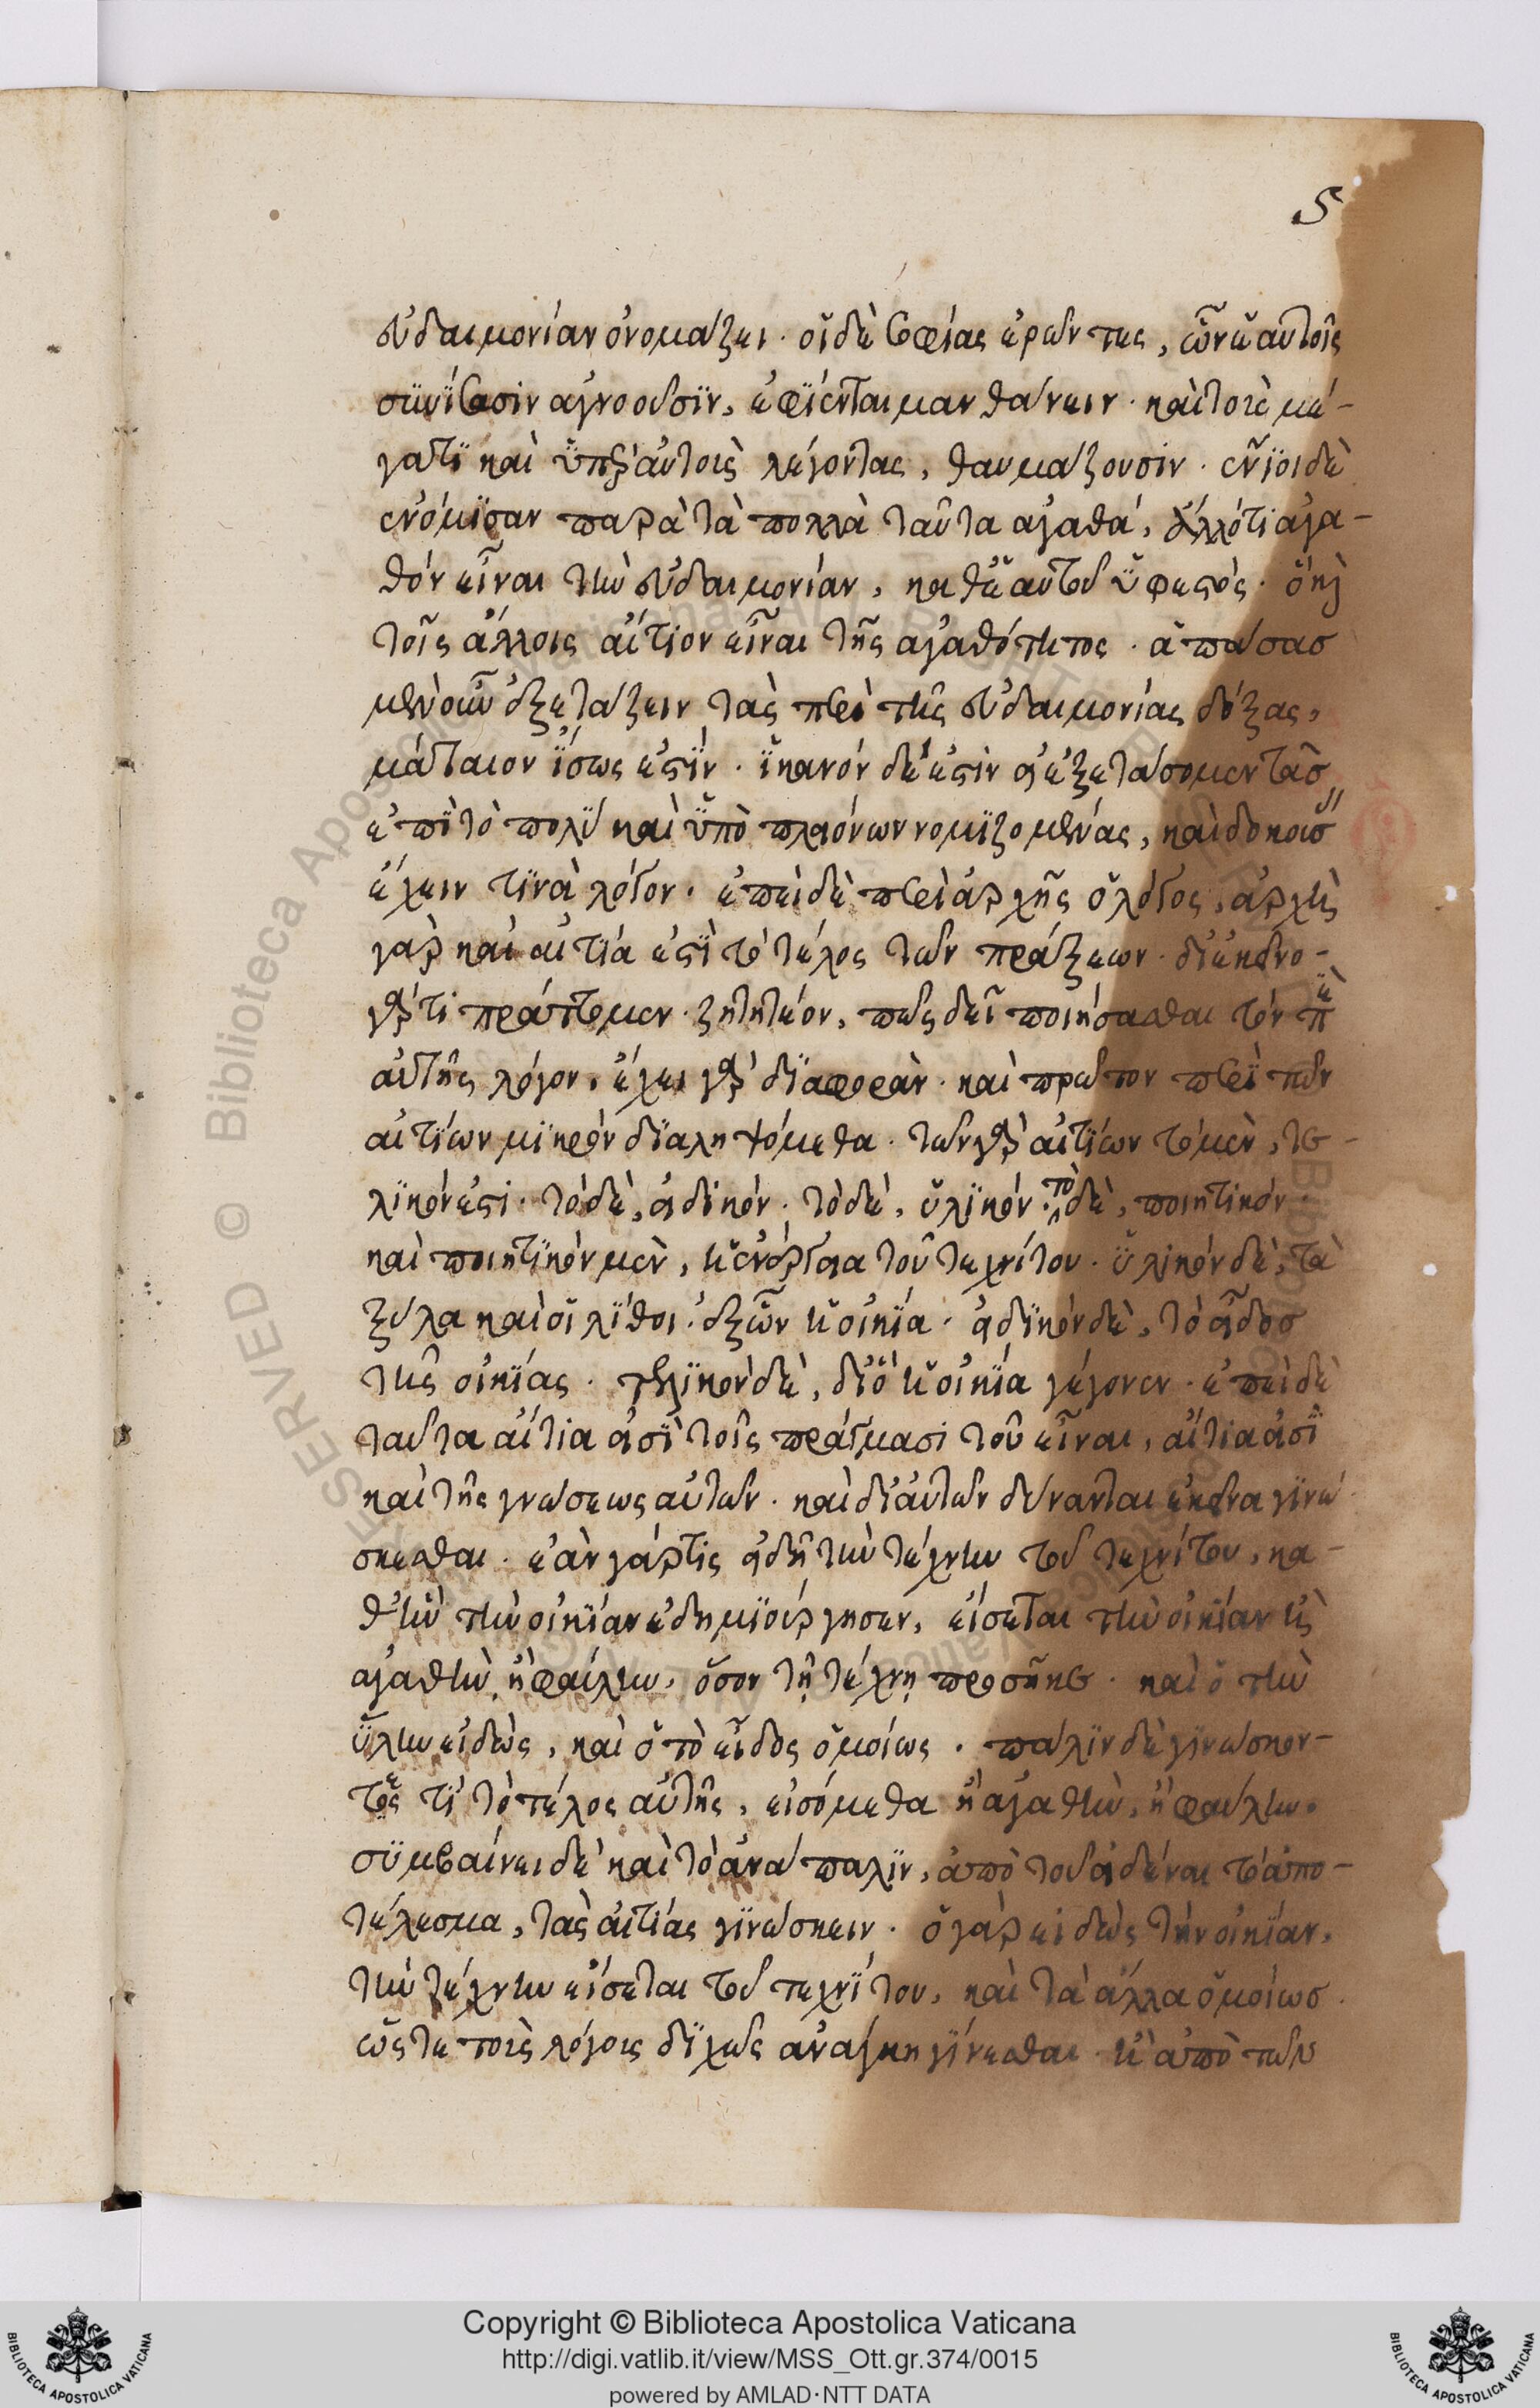 5
εὐδαιμονίαν ὀνομάζει · οἱ δὲ σοφίας ἐρῶντες, ὧν ἑαυτοῖς
συνίσασιν ἀγνοοῦσιν, ἐφίενται μανθάνειν · καὶ τοὺς μέ-
γα τι καὶ ὑπὲρ αὐτοὺς λέγοντας, θαυμάζουσιν · ἔνϊοι δὲ
ἐνόμισαν παρὰ τὰ πολλὰ ταῦτα ἀγαθά, ἄλλό τι ἀγα-
θόν εἶναι τὴν εὐδαιμονίαν, καθ' ἑαυτὸ ὑφεστός · ὃ καὶ
τοῖς ἄλλοις αἴτιον εἶναι τῆς ἀγαθότητος · ἁπάσας
μὲν οὖν ἐξετάζειν τὰς περὶ τῆς εὐδαιμονίας δόξας,
μάταιον ἴσως ἐστίν · ἱκανόν δέ ἐστιν εἰ ἐξετάσομεν τὰς
ἐπὶ τὸ πολὺ καὶ ὑπὸ πλειόνων νομιζομένας, καὶ δοκούσ
ἔχειν τινὰ λόγον · ἐπεὶ δὲ περὶ ἀρχῆς ὁ λόγος, ἀρχὴ
γὰρ καὶ αἰτία ἐστὶ τὸ τέλος τῶν πράξεων · δι' ἐκεῖνο
γάρ τι πράττομεν · ζητητέον, πῶς δεῖ ποιήσασθαι τόν πε
αὐτῆς λόγον, ἔχει γὰρ διαφοράν · καὶ πρῶτον περὶ τῶν
αἰτίων μικρόν διαληψόμεθα · τῶν γὰρ αἰτίων τὸ μὲν, τε-
λικόν ἐστι · τὸ δὲ, εἰδικόν · τὸ δὲ, ὑλικόν · τὸ δὲ, ποιητικόν ·
καὶ ποιητικόν μὲν, ἡ ἐνέργεια τοῦ τεχνίτου · ὑλικόν δὲ, τὰ
ξύλα καὶ οἱ λίθοι · ἐξ ὧν ἡ οἰκία · εἰδικόν δὲ, τὸ εἶδος
τῆς οἰκίας · τελικόν δὲ, δι' ὃ ἡ οἰκία γέγονεν · ἐπεὶ δὲ
ταῦτα αἴτια εἰσὶ τοῖς πράγμασι τοῦ εἶναι, αἴτια εἰσὶ
καὶ τῆς γνώσεως αὐτῶν · καὶ δι' αὐτῶν δύνανται ἐκεῖνα γινώ
σκεσθαι · ἐὰν γάρ τις εἰδῇ τὴν τέχνην τοῦ τεχνίτου, κα-
θ' ἣν τὴν οἰκίαν ἐδημιούργησεν, εἴσεται τὴν οἰκίαν ἢ
ἀγαθὴν ἢ φαύλην, ὅσον τῇ τέχνῃ προσῆκε · καὶ ὁ τὴν
ὕλην εἰδὼς, καὶ ὁ τὸ εἶδος ὁμοίως · πάλιν δὲ γινώσκον-
τες τί τὸ τέλος αὐτῆς, εἰσόμεθα ἢ ἀγαθὴν, ἢ φαύλην.
συμβαίνει δὲ καὶ τὸ ἀνάπαλιν, ἀπὸ τοῦ εἰδέναι τὸ ἀπο-
τέλεσμα, τὰς αἰτίας γινώσκειν · ὁ γὰρ εἰδὼς τὴν οἰκίαν,
τὴν τέχνην εἴσεται τοῦ τεχνίτου, καὶ τὰ ἄλλα ὁμοίως ·
ὥστε τοὺς λόγους διχῶς ἀνάγκη γίνεσθαι · ἢ ἀπὸ τῶν
Copyright © Biblioteca Apostolica Vaticana
http://digi.vatlib.it/view/MSS_Ott.gr.374/0015
powered by AMLAD·NTT DATA
BIBLIOTECA APOSTOLICA VATICANA
BIBLIOTECA APOSTOLICA VATICANA